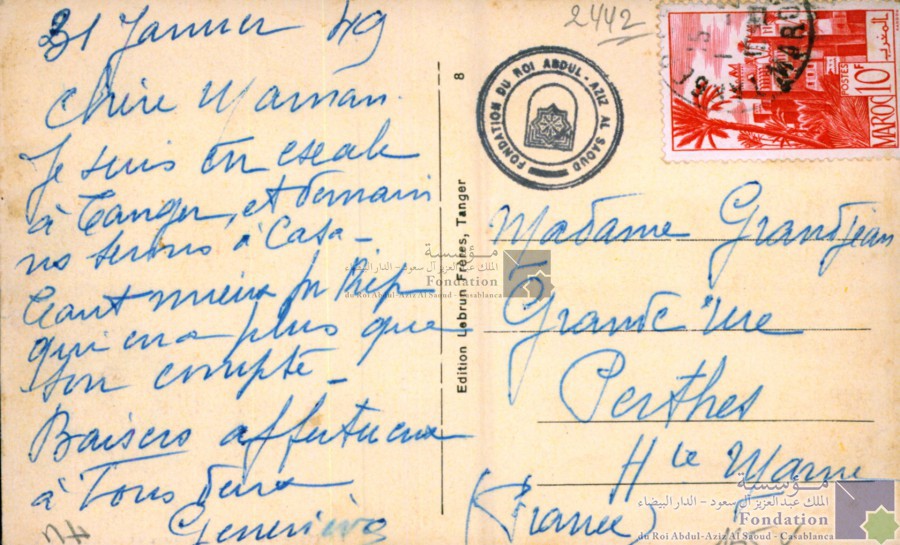 31 Janvier 49
Chère Maman.
Je suis en escale
à Tanger, et demain
ns serons à Casa -
Tant mieux pr Pip
qui en a plus que
son compte -
Baisers affectueux
à Tous deux
Geneviève
2442
FONDATION DU ROI ABDUL-AZIZ AL SAOUD
MAROC 10F
POSTES
المغرب
8
Edition Lebrun Frères, Tanger
Madame Grandjean
Grande rue
Perthes
Hte Marne
(France)
مؤسسة
الملك عبد العزيز آل سعود - الدار البيضاء
Fondation
du Roi Abdul-Aziz Al Saoud - Casablanca
مؤسسة
الملك عبد العزيز آل سعود - الدار البيضاء
Fondation
du Roi Abdul-Aziz Al Saoud - Casablanca